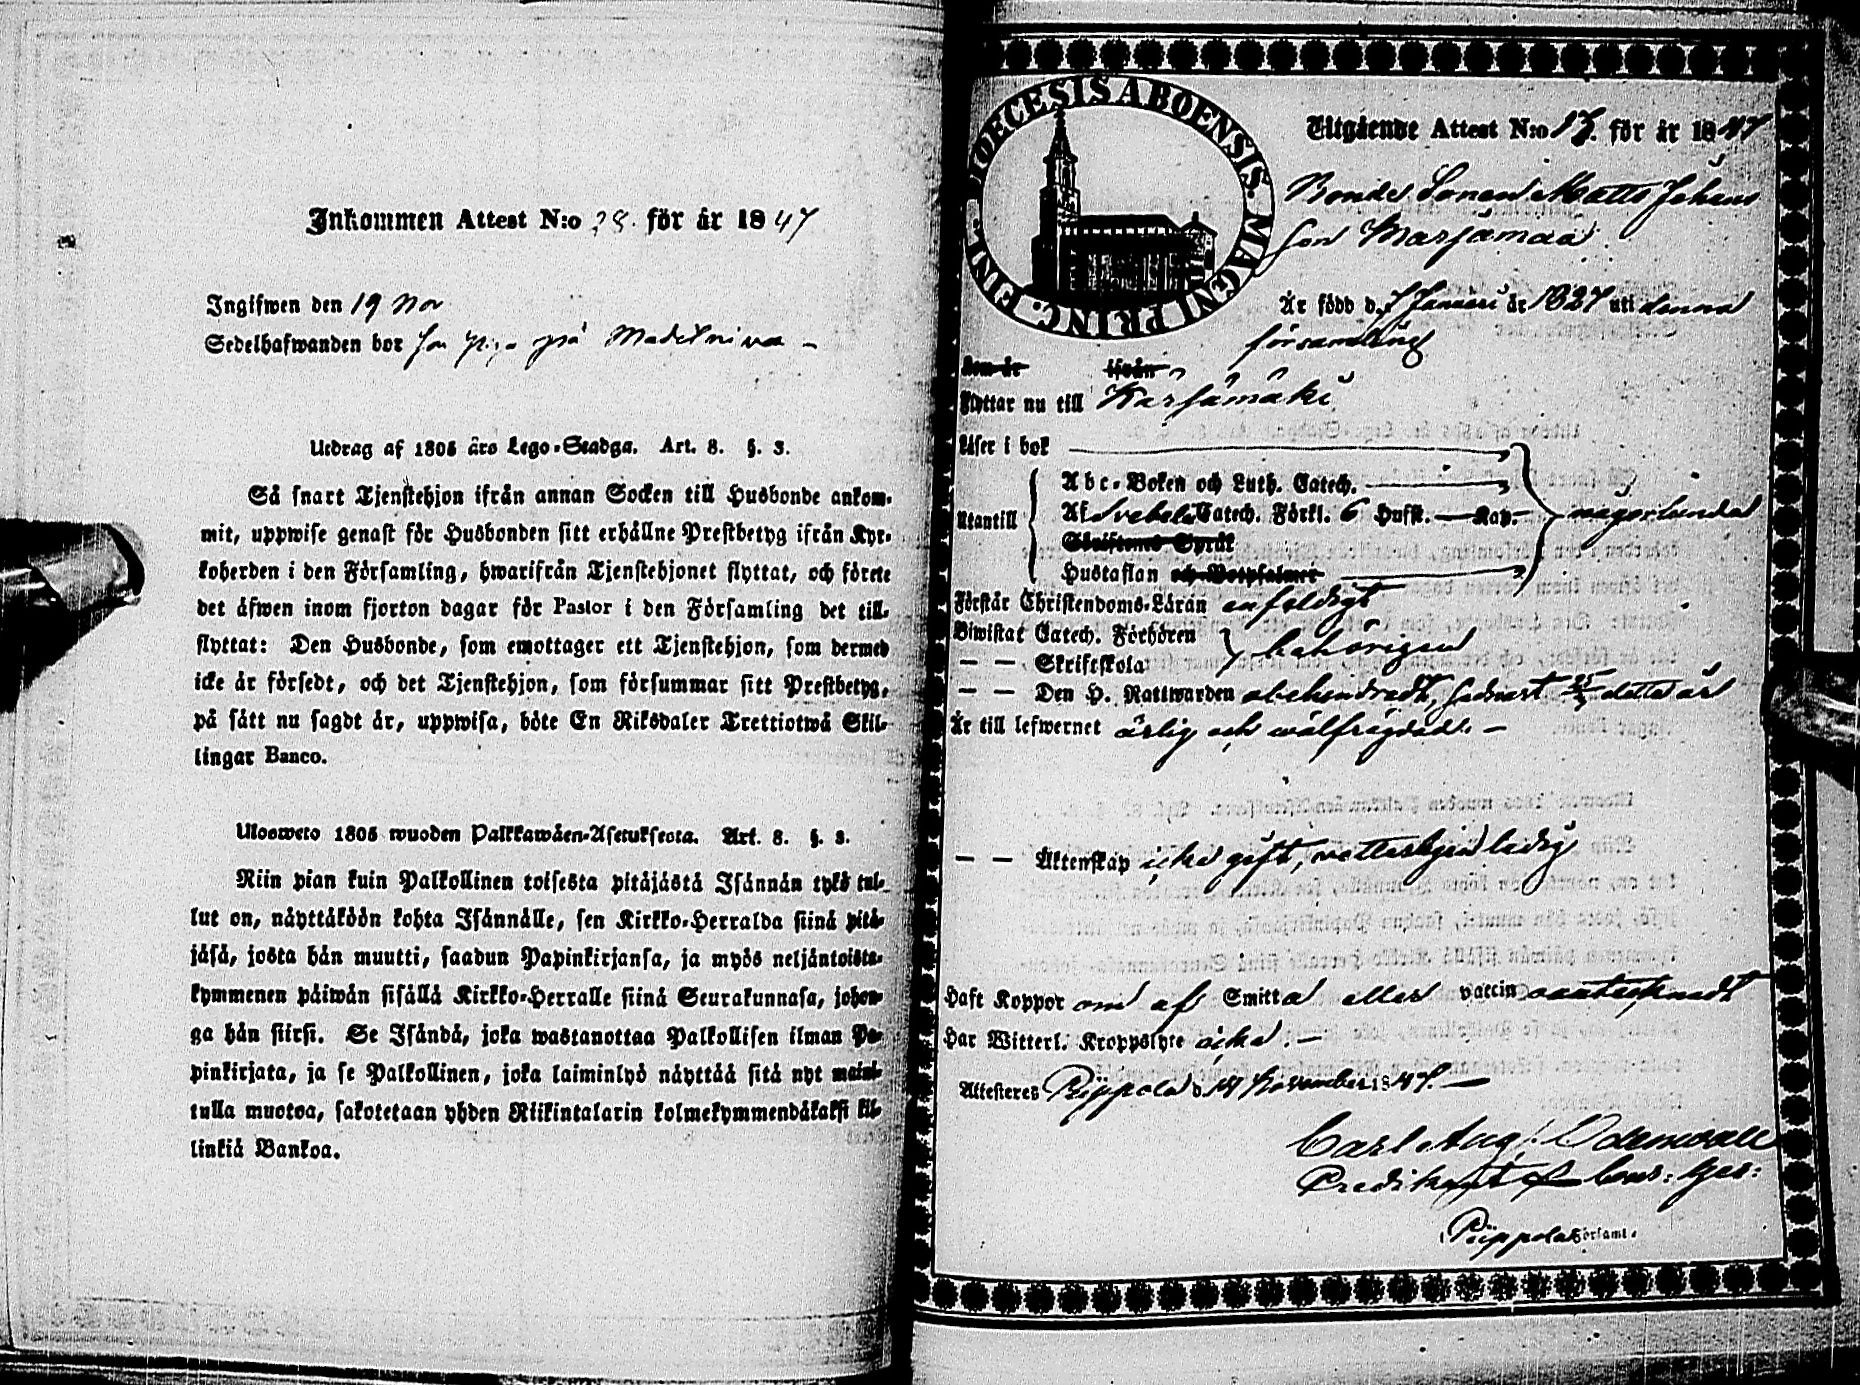 Inkommen Attest N:o 28. för år 1847
Ingifwen den 19 Nov
Sedelhafwanden bor på
Utdrag af 1805 års Lego-Stadga. Art. 8. §. 3.
Så snart Tjenstehjon ifrån annan Socken till Husbonde ankom-
mit, uppwise genast för Husbonden sitt erhållne Prestbetyg ifrån Kyr-
koherden i den Församling, hwarifrån Tjenstehjonet flyttat, och förete
det äfwen inom fjorton dagar för Pastor i den Församling det till-
flyttat: Den Husbonde, som emottager ett Tjenstehjon, som dermed
icke är försedt, och det Tjenstehjon, som försummar sitt Prestbetyg,
på sätt nu sagdt är, uppwisa, böte En Riksdaler Trettiotwå Skil-
lingar Banco.
Ulosweto 1805 wuoden Palkkawäen-Asetuksesta. Art. 8. §. 3.
Niin pian kuin Palkollinen toisesta pitäjästä Isännän tykö tul-
lut on, näyttäköön kohta Isännälle, sen Kirkko-Herralda siinä pitä-
jäsä, josta hän muutti, saadun Papinkirjansa, ja myös neljäntoista-
kymmenen päiwän sisällä Kirkko-Herralle siinä Seurakunnasa, johon-
ga hän siirsi. Se Isändä, joka wastanottaa Palkollisen ilman Pa-
pinkirjata, ja se Palkollinen, joka laiminlyö näyttää sitä nyt maini-
tulla muotoa, sakotetaan yhden Riikintalarin kolmekymmendäkaksi kil-
linkiä Bankoa.
DIOECESIS ABOENSIS. MAGNI PRINC. FINL.
Utgående Attest N:o 17. för år 1847
Bonde Sonen Matts Johans
son Marjamaa
Är född d. 7 Januari år 1827 uti denna
församling
kom år ifrån
Flyttar nu till Kärsämäki
Läser i bok
Utantill
Abc-Boken och Luth. Catech.
Af Svebelii Catech. Förkl. 6 Hufst. Kap. någorlunda
Christeml. Språk
Hustaflan och Botpsalmer
Förstår Christendoms-Läran enfaldigt
Biwistat Catech. Förhören
— — Skriftskola behörigen
— — Den H. Nattwarden obehindradt, sednast detta år
Är till lefwernet ärlig och wälfrägdad. —
— — Äktenskap icke gift, ledig
Haft Koppor om af Smitta eller vaccin oantecknadt
Har Witterl. Kroppslyte icke. —
Attesteres Pippola d. 14 November 1847. —
Carl Aug. Odenwall
Predikant
Pippola Församl.